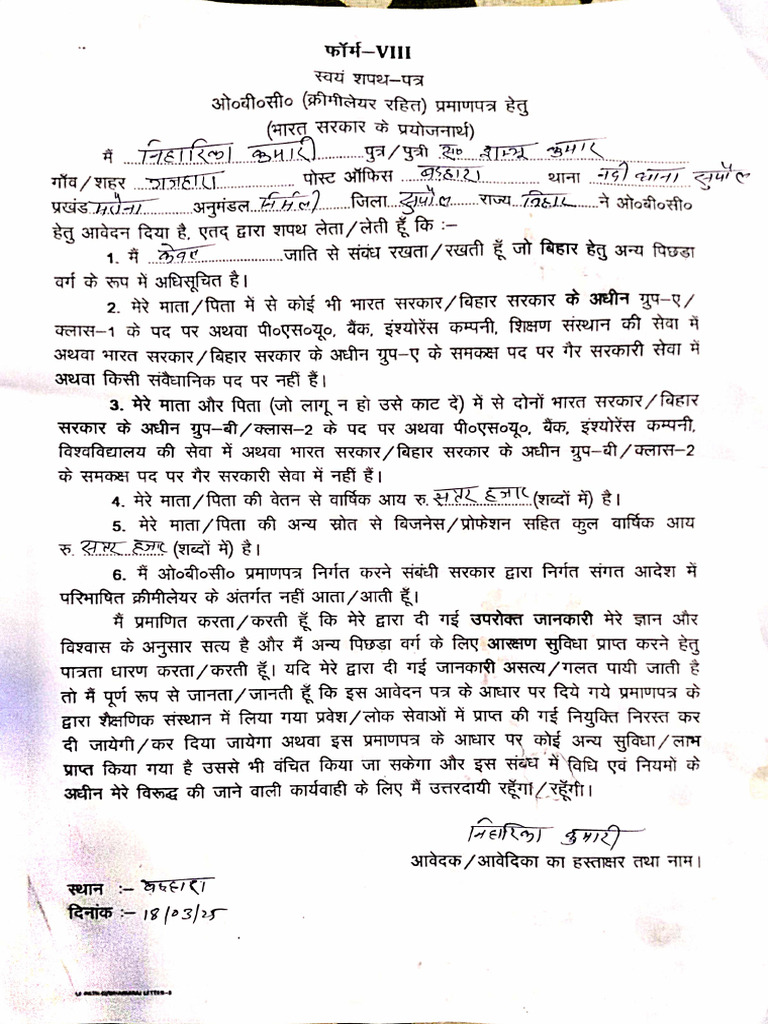 फॉर्म–VIII
स्वयं शपथ–पत्र
ओ०बी०सी० (क्रीमीलेयर रहित) प्रमाणपत्र हेतु
(भारत सरकार के प्रयोजनार्थ)
मैं निहारिका कुमारी पुत्र/पुत्री शम्भू कुमार
गाँव/शहर पोस्ट ऑफिस बड़हारा थाना नदी थाना सुपौल
प्रखंड मरौना अनुमंडल निर्मली जिला सुपौल राज्य बिहार ने ओ०बी०सी०
हेतु आवेदन दिया है, एतद् द्वारा शपथ लेता/लेती हूँ कि :–
1. मैं केवट जाति से संबंध रखता/रखती हूँ जो बिहार हेतु अन्य पिछडा
वर्ग के रूप में अधिसूचित है।
2. मेरे माता/पिता में से कोई भी भारत सरकार/बिहार सरकार के अधीन ग्रुप–ए/
क्लास–1 के पद पर अथवा पी०एस०यू०, बैंक, इंश्योरेंस कम्पनी, शिक्षण संस्थान की सेवा में
अथवा भारत सरकार/बिहार सरकार के अधीन ग्रुप–ए के समकक्ष पद पर गैर सरकारी सेवा में
अथवा किसी संवैधानिक पद पर नहीं हैं।
3. मेरे माता और पिता (जो लागू न हो उसे काट दे) में से दोनों भारत सरकार/बिहार
सरकार के अधीन ग्रुप–बी/क्लास–2 के पद पर अथवा पी०एस०यू०, बैंक, इंश्योरेंस कम्पनी,
विश्वविद्यालय की सेवा में अथवा भारत सरकार/बिहार सरकार के अधीन ग्रुप–बी/क्लास–2
के समकक्ष पद पर गैर सरकारी सेवा में नहीं हैं।
4. मेरे माता/पिता की वेतन से वार्षिक आय रु. सत्तर हजार (शब्दों में) है।
5. मेरे माता/पिता की अन्य स्रोत से बिजनेस/प्रोफेशन सहित कुल वार्षिक आय
रु. सत्तर हजार (शब्दों में) है।
6. मैं ओ०बी०सी० प्रमाणपत्र निर्गत करने संबंधी सरकार द्वारा निर्गत संगत आदेश में
परिभाषित क्रीमीलेयर के अंतर्गत नहीं आता/आती हूँ।
मैं प्रमाणित करता/करती हूँ कि मेरे द्वारा दी गई उपरोक्त जानकारी मेरे ज्ञान और
विश्वास के अनुसार सत्य है और मैं अन्य पिछडा वर्ग के लिए आरक्षण सुविधा प्राप्त करने हेतु
पात्रता धारण करता/करती हूँ। यदि मेरे द्वारा दी गई जानकारी असत्य/गलत पायी जाती है
तो मैं पूर्ण रूप से जानता/जानती हूँ कि इस आवेदन पत्र के आधार पर दिये गये प्रमाणपत्र के
द्वारा शैक्षणिक संस्थान में लिया गया प्रवेश/लोक सेवाओं में प्राप्त की गई नियुक्ति निरस्त कर
दी जायेगी/कर दिया जायेगा अथवा इस प्रमाणपत्र के आधार पर कोई अन्य सुविधा/लाभ
प्राप्त किया गया है उससे भी वंचित किया जा सकेगा और इस संबंध में विधि एवं नियमों के
अधीन मेरे विरूद्ध की जाने वाली कार्यवाही के लिए मैं उत्तरदायी रहूँगा/रहूँगी।
निहारिका कुमारी
आवेदक/आवेदिका का हस्ताक्षर तथा नाम।
स्थान :– बड़हारा
दिनांक :– 18/03/25